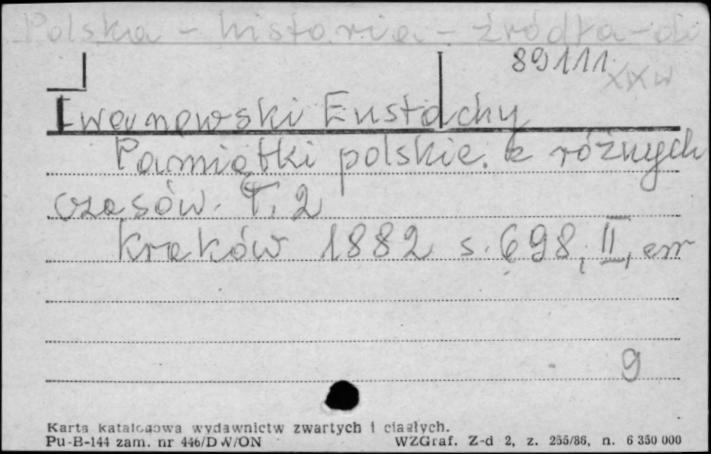 Polska - historia - źródła - do
89111
XX w
Iwanowski Eustachy
Pamiątki polskie. z różnych
czasów. T. 2
Kraków 1882 s. 698, II, err
9
Karta katalogowa wydawnictw zwartych i ciągłych.
Pu-B-144 zam. nr 446/DW/ON WZGraf. Z-d 2, z. 255/86, n. 6 350 000